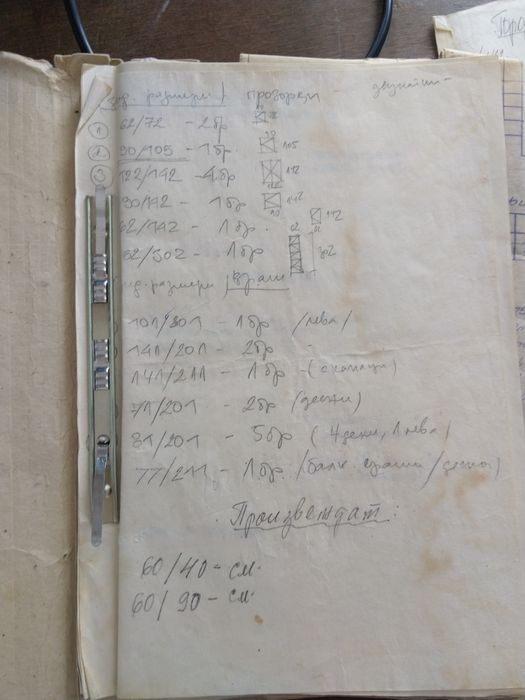 /зид. размери/ прозорец - двукатни -
① 62/72 - 2бр
② 90/105 - 1бр. 90 105
③ 122/142 - 4бр 142
90/142 - 1бр 142
62/142 - 1бр. 142
62/302 - 1бр 62 302
зид. размери / врати
101/201 - 1бр /лева/
141/201 - 2бр -
141/211 - 1бр -
71/201 - 2бр /десни/
81/201 - 5бр (4 десни, 1 лева)
77/211 - 1бр. /балк. врати / дясна)
Произвеждат:
60/40 - см.
60/90 - см.